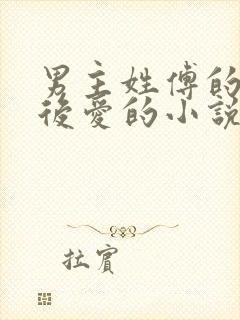 男主姓傅的
後愛的小說
拉賓